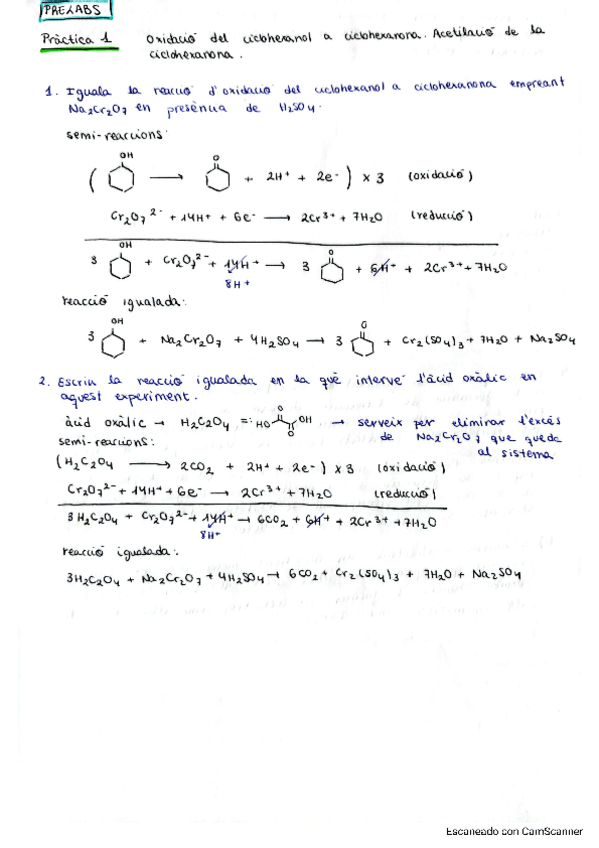 PRELABS
Pràctica 1 Oxidació del ciclohexanol a ciclohexanona. Acetilació de la
ciclohexanona.
1. Iguala la reacció d'oxidació del ciclohexanol a ciclohexanona emprant
Na2Cr2O7 en presència de H2SO4.
semi-reaccions:
( OH ⟶ O + 2H+ + 2e- ) x 3 (oxidació)
Cr2O7 2- + 14H+ + 6e- ⟶ 2Cr3+ + 7H2O (reducció)
3 OH + Cr2O7 2- + 14H+ ⟶ 3 O + 6H+ + 2Cr3+ + 7H2O
8H+
reacció igualada:
3 OH + Na2Cr2O7 + 4H2SO4 ⟶ 3 O + Cr2(SO4)3 + 7H2O + Na2SO4
2. Escriu la reacció igualada en la què intervé l'àcid oxàlic en
aquest experiment.
àcid oxàlic → H2C2O4 =: HO O O OH → serveix per eliminar l'excés
de Na2Cr2O7 que queda
al sistema
semi-reaccions:
(H2C2O4 ⟶ 2CO2 + 2H+ + 2e-) x 3 (oxidació)
Cr2O7 2- + 14H+ + 6e- ⟶ 2Cr3+ + 7H2O (reducció)
3H2C2O4 + Cr2O7 2- + 14H+ → 6CO2 + 6H+ + 2Cr3+ + 7H2O
8H+
reacció igualada:
3H2C2O4 + Na2Cr2O7 + 4H2SO4 → 6CO2 + Cr2(SO4)3 + 7H2O + Na2SO4
Escaneado con CamScanner